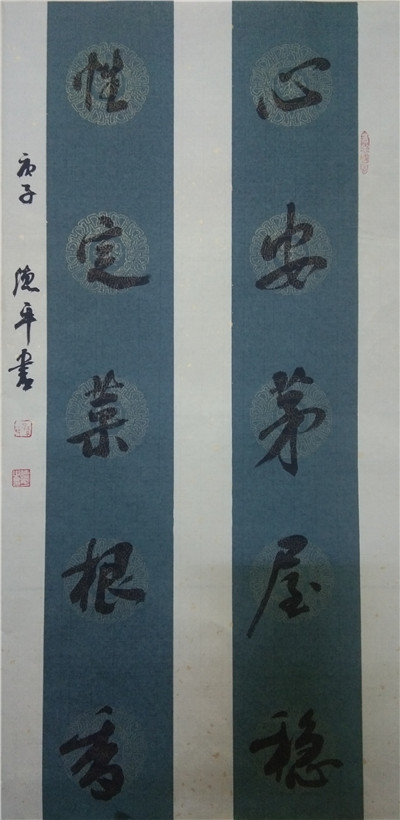 心安茅屋稳
性定菜根香
庚子 德平书